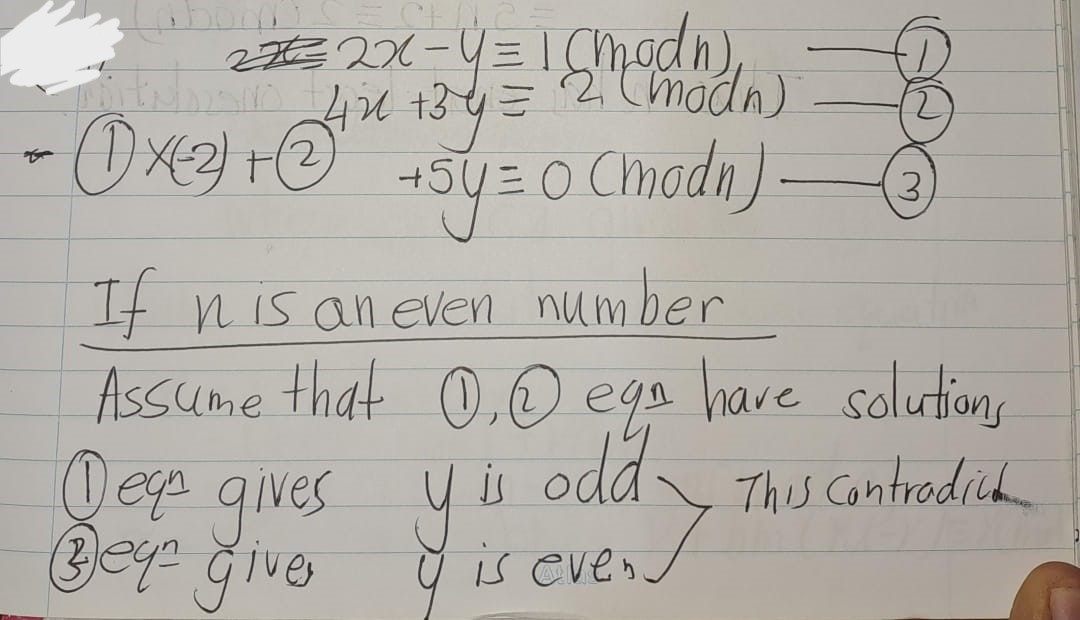 2x - y ≡ 1 (modn) — ①
4x + 3y ≡ 2 (modn) — ②
① x(-2) + ② +5y ≡ 0 (modn) — ③
If n is an even number
Assume that ①, ② eqn have solutions
① eqn gives y is odd This contradict
③ eqn gives y is even